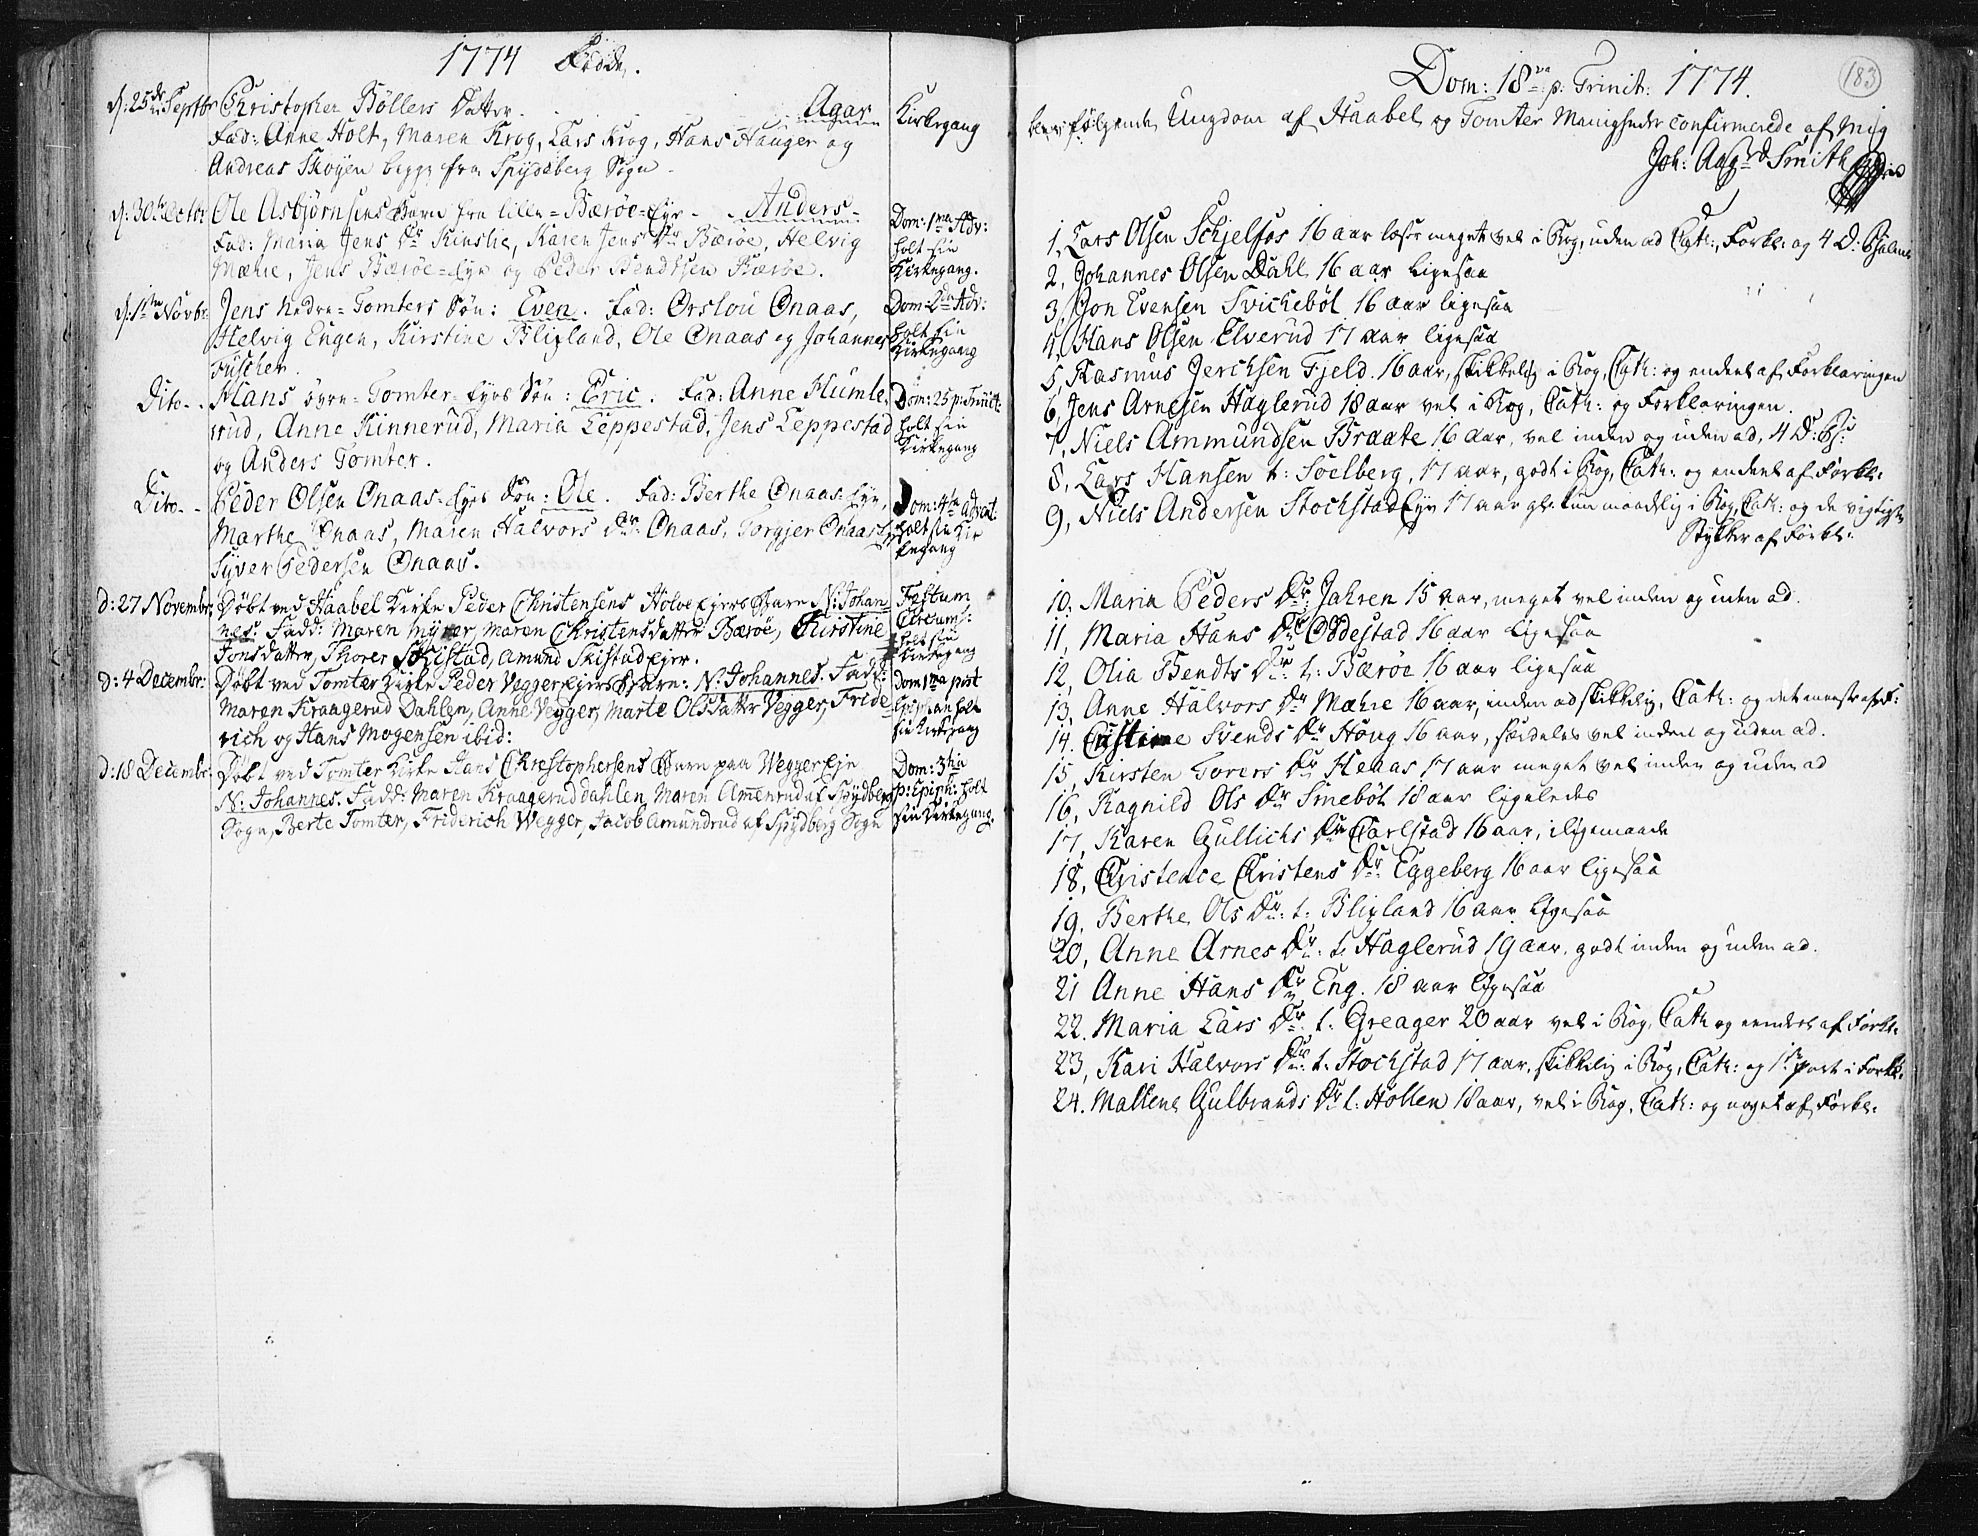 1774 Fødde.
d: 25de Septbr Christopher Bøllers Datter Agar
Fad: Anne Holt, Maren Krog, Lars Krog, Hans Hauger og
Andreas Skoyen begge fra Spydeberg Sogn
Kirkegang
d: 30te Octbr Ole Asbjørnsens Barn fra lille-Bærøe-Eye - Anders
Fad: Maria Jens Dr Kinslie, Karen Jens Dr Bærøe, Helvig
Mæhre, Jens Bærøe-Eye og Peder Bendtsen Bærøe.
Dom: 1ma Adv:
holt sin
Kirkegang.
d: 1te Novbr Jens nedre-Tomters Søn: Even. Fad: Orslou Onaas,
Helvig Engen, Kirstine Blixland, Ole Onaas og Johannes
Fuscher.
Dom: 2da Adv:
holt sin
Kirkegang
Dito - - Hans øvre-Tomter-Eyes Søn: Eric. Fad: Anne Humle,
rud, Anne Kinnerud, Maria Leppestad, Jens Leppestad
og Anders Tomter.
Dom: 25 p: Trinit:
holt sin
Kirkegang
Dito - - Peder Olsen Onaas-Eyes Søn: Ole. Fad: Berthe Onaas-Eye,
Marthe Onaas, Maren Halvors Dr Onaas, Torgjer Onaas
Syver Pedersen Onaas.
Dom: 4ta Advent:
holt sin Kir
kegang
d: 27 Novembr: Døbt ved Haabel Kirke Peder Christensens Holve Ejers Barn N: Johan
nes: Fadd: Maren Myrer, Maren Christensdatter Bærøe, Kirstine
Jonsdatter, Thorer Skistad, Amund Skistadejer.
Festum
Circums:
holt sin
Kirkegang
d: 4 Decembr: Døbt ved Tomter Kirke Peder Veggerejers Barn: N: Johannes. Fadd:
Maren Kraagerud Dahlen, Anne Vegger, Marte Olsdatter Vegger, Fride
rich og Hans Mogensen ibid:
Dom 1ma post
Epiphan holt
sin Kirkegang
d: 18 Decembr: Døbt ved Tomter Kirke Hans Chrestophersens Barn paa Wegger Eje
N: Johannes. Fadd: Maren Kraagerud dahlen, Maren Amenrud af Spydberg
Sogn, Berte Tomter, Friderich Wegger, Jacob Amundrud af Spydberg Sogn
Dom: 3tia
p: Epiph: holt
sin Kirkegang.
183
Dom: 18va p: Trinit: 1774.
blev følgende Ungdom af Haabel og Tomter Menigheder confirmerede af mig
Joh: Aagrd Smith
1, Lars Olsen Schjelfos 16 aar læser meget vel i Bog, uden ad Cath:, Forkl: og 4 D: Psalmer
2, Johannes Olsen Dahl 16 aar ligesaa
3, Jon Evensen Svichebøl 16 aar ligesaa
4, Hans Olsen Elverud 17 aar ligesaa
5, Rasmus Jerchsen Fjeld. 16 aar, skikkelig i Bog, Cath: og endeel af Forklaringen
6, Jens Arnesen Haglerud 18 aar vel i Bog, Cath: og Forklaringen.
7, Niels Ammundsen Braate 16 aar, vel inden og uden ad, 4 D: Ps:
8, Lars Hansen t: Soelberg, 17 aar, godt i Bog, Cath: og endeel af Forkl:
9, Niels Andersen Stochstad Eye 17 aar gl: kun maadelig i Bog, Cath: og de vigtigste
Stykker af Forkl:
10, Maria Peders Dr: Jahren 15 aar, meget vel inden og uden ad.
11, Maria Hans Dr Oddestad 16 aar ligesaa
12, Olia Bendts Dr: t: Bærøe 16 aar ligesaa
13, Anne Halvors Dr Mæhre 16 aar, inden ad skikkelig, Cath: og det meeste af F:
14. Cristine Svends Dr Houg 16 aar, særdeles vel inden og uden ad.
15, Kirsten Torers Dr Heaas 17 aar meget vel inden og uden ad
16, Ragnild Ols Dr Smebøl 18 aar ligeledes
17, Karen Gullichs Dr Carlstad 16 aar, i ligemaade
18, Christence Christens Dr: Eggeberg 16 aar ligesaa
19, Berthe Ols Dr: t: Blixland 16 aar ligesaa
20, Anne Arnes Dr: t: Haglerud 19 aar, godt inden og uden ad.
21 Anne Hans Dr Eng. 18 aar ligesaa
22. Maria Lars Dr: t: Greager 20 aar vel i Bog, Cath og eendeel af Forkl:
23, Kari Halvors Dr: t: Stochstad 17 aar, skikkelig i Bog, Cath: og 1te part i Forkl:
24. Mallene Gulbrands Dr t: Hollen 18 aar, vel i Bog, Cath: og noget af Forkl: